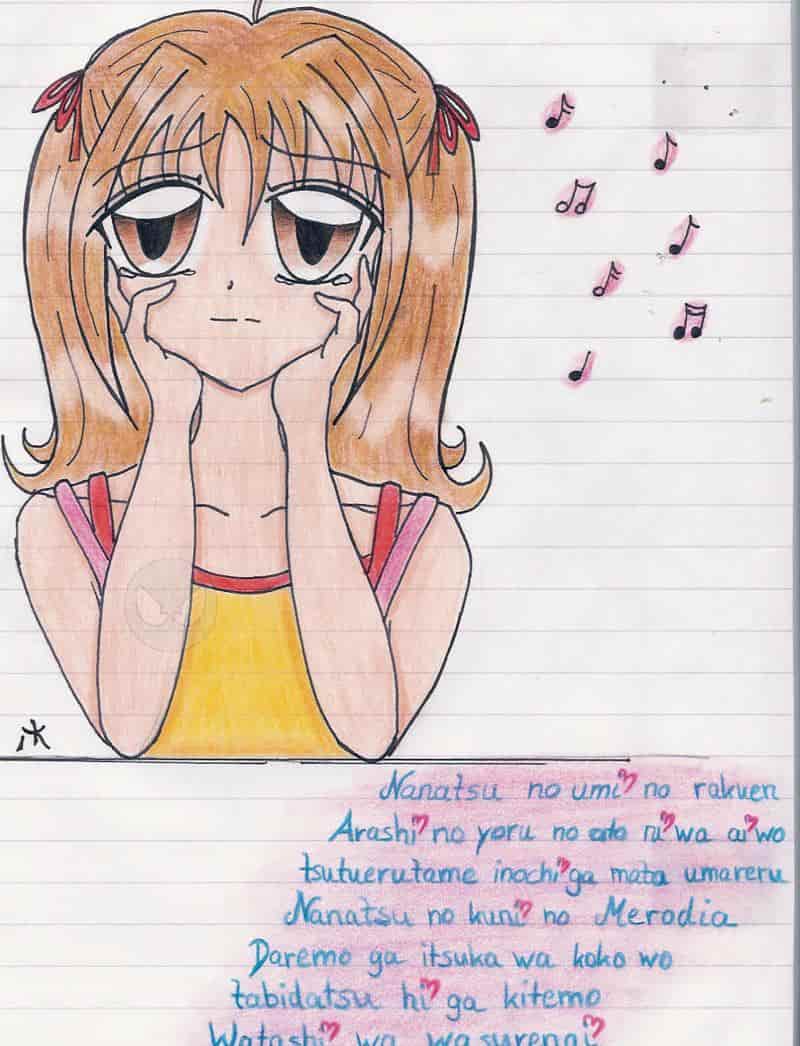 Nanatsu no umi no rakuen
Arashi no yoru no ato ni wa ai wo
tsutuerutame inochi ga mata umareru
Nanatsu no kuni no Merodia
Daremo ga itsuka wa koko wo
tabidatsu hi ga kitemo
Watashi wa wasurenai